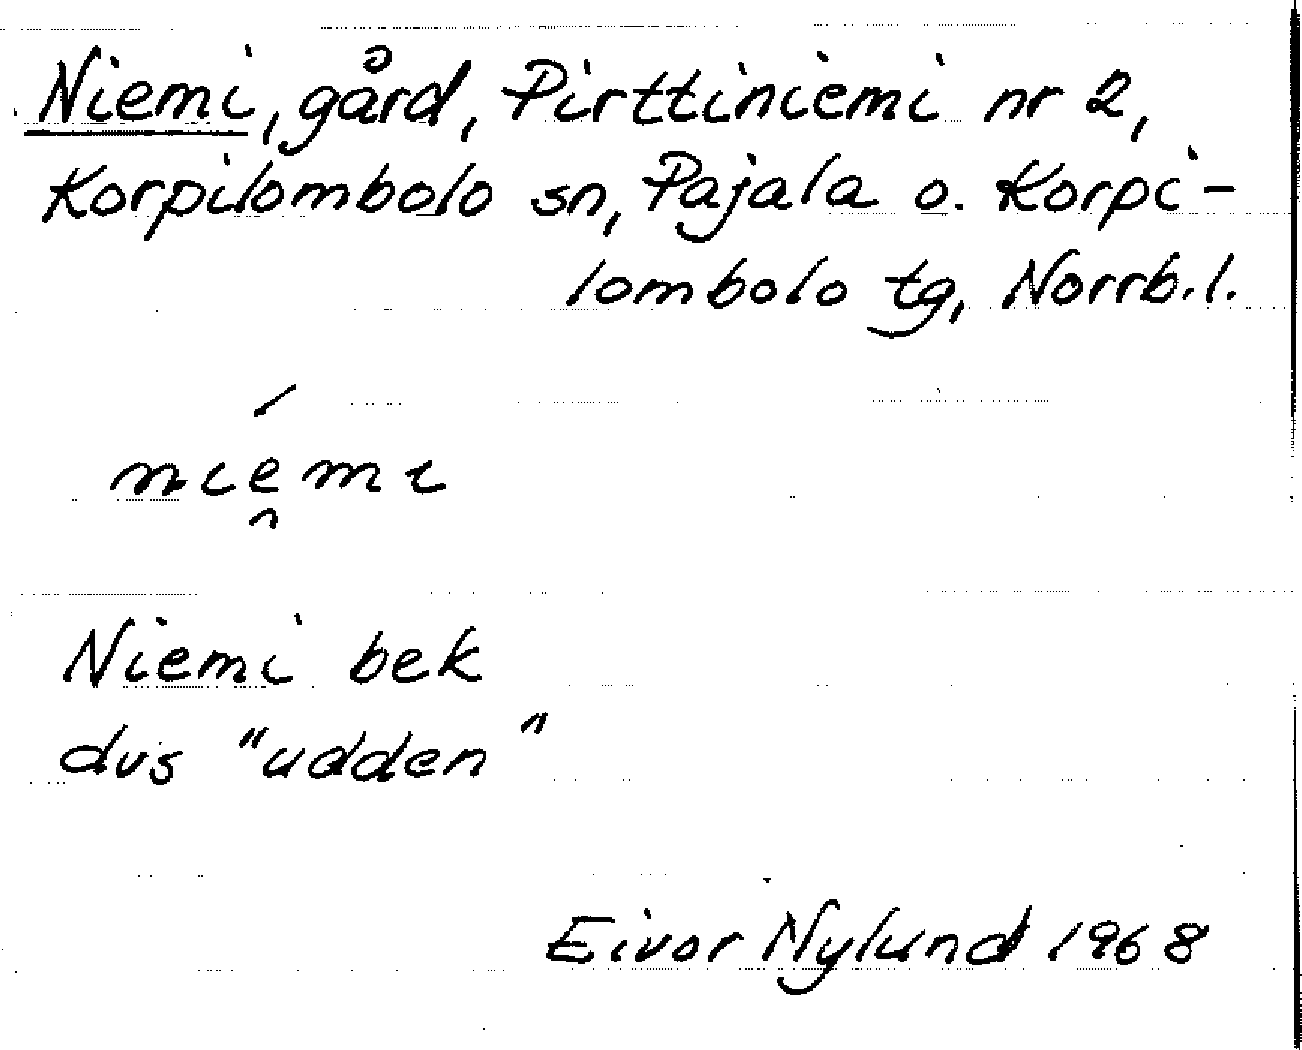 Niemi, gård, Pirttiniemi nr 2,
Korpilombolo sn, Pajala o. Korpi-
lombolo tg, Norrb.l.
niémi
Niemi bek
dvs "udden"
Eivor Nylund 1968